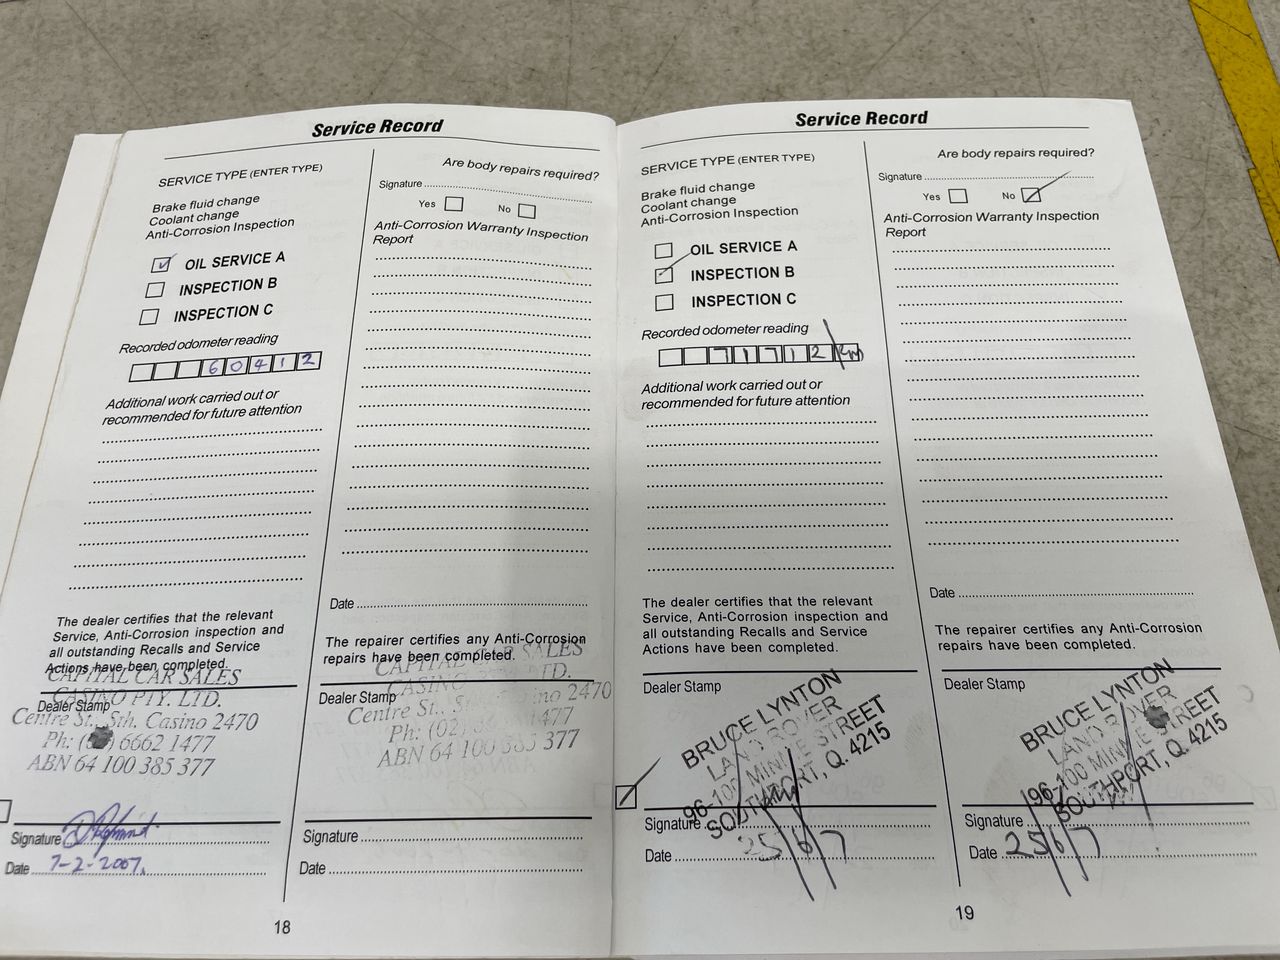 Service Record
SERVICE TYPE (ENTER TYPE)
Brake fluid change
Coolant change
Anti-Corrosion Inspection
OIL SERVICE A
INSPECTION B
INSPECTION C
Recorded odometer reading
60412
Additional work carried out or
recommended for future attention
The dealer certifies that the relevant
Service, Anti-Corrosion inspection and
all outstanding Recalls and Service
Actions have been completed.
CAPITAL CAR SALES
CASINO PTY. LTD.
Dealer Stamp
Centre St., Sth. Casino 2470
Ph: 6662 1477
ABN 64 100 385 377
Signature
Date 7-2-2007.
Are body repairs required?
Signature
Yes No
Anti-Corrosion Warranty Inspection
Report
Date
The repairer certifies any Anti-Corrosion
repairs have been completed.
CAPITAL CAR SALES
CASINO LTD.
Dealer Stamp
Centre St., Casino 2470
Ph: (02) 1477
ABN 64 100 385 377
Signature
Date
18
Service Record
SERVICE TYPE (ENTER TYPE)
Brake fluid change
Coolant change
Anti-Corrosion Inspection
OIL SERVICE A
INSPECTION B
INSPECTION C
Recorded odometer reading
71712 km
Additional work carried out or
recommended for future attention
The dealer certifies that the relevant
Service, Anti-Corrosion inspection and
all outstanding Recalls and Service
Actions have been completed.
Dealer Stamp
BRUCE LYNTON
LAND ROVER
96-100 MINNIE STREET
SOUTHPORT, Q. 4215
Signature
Date 25/6/7
Are body repairs required?
Signature
Yes No
Anti-Corrosion Warranty Inspection
Report
Date
The repairer certifies any Anti-Corrosion
repairs have been completed.
Dealer Stamp
BRUCE LYNTON
LAND ROVER
96-100 MINNIE STREET
SOUTHPORT, Q. 4215
Signature
Date 25/6/7
19